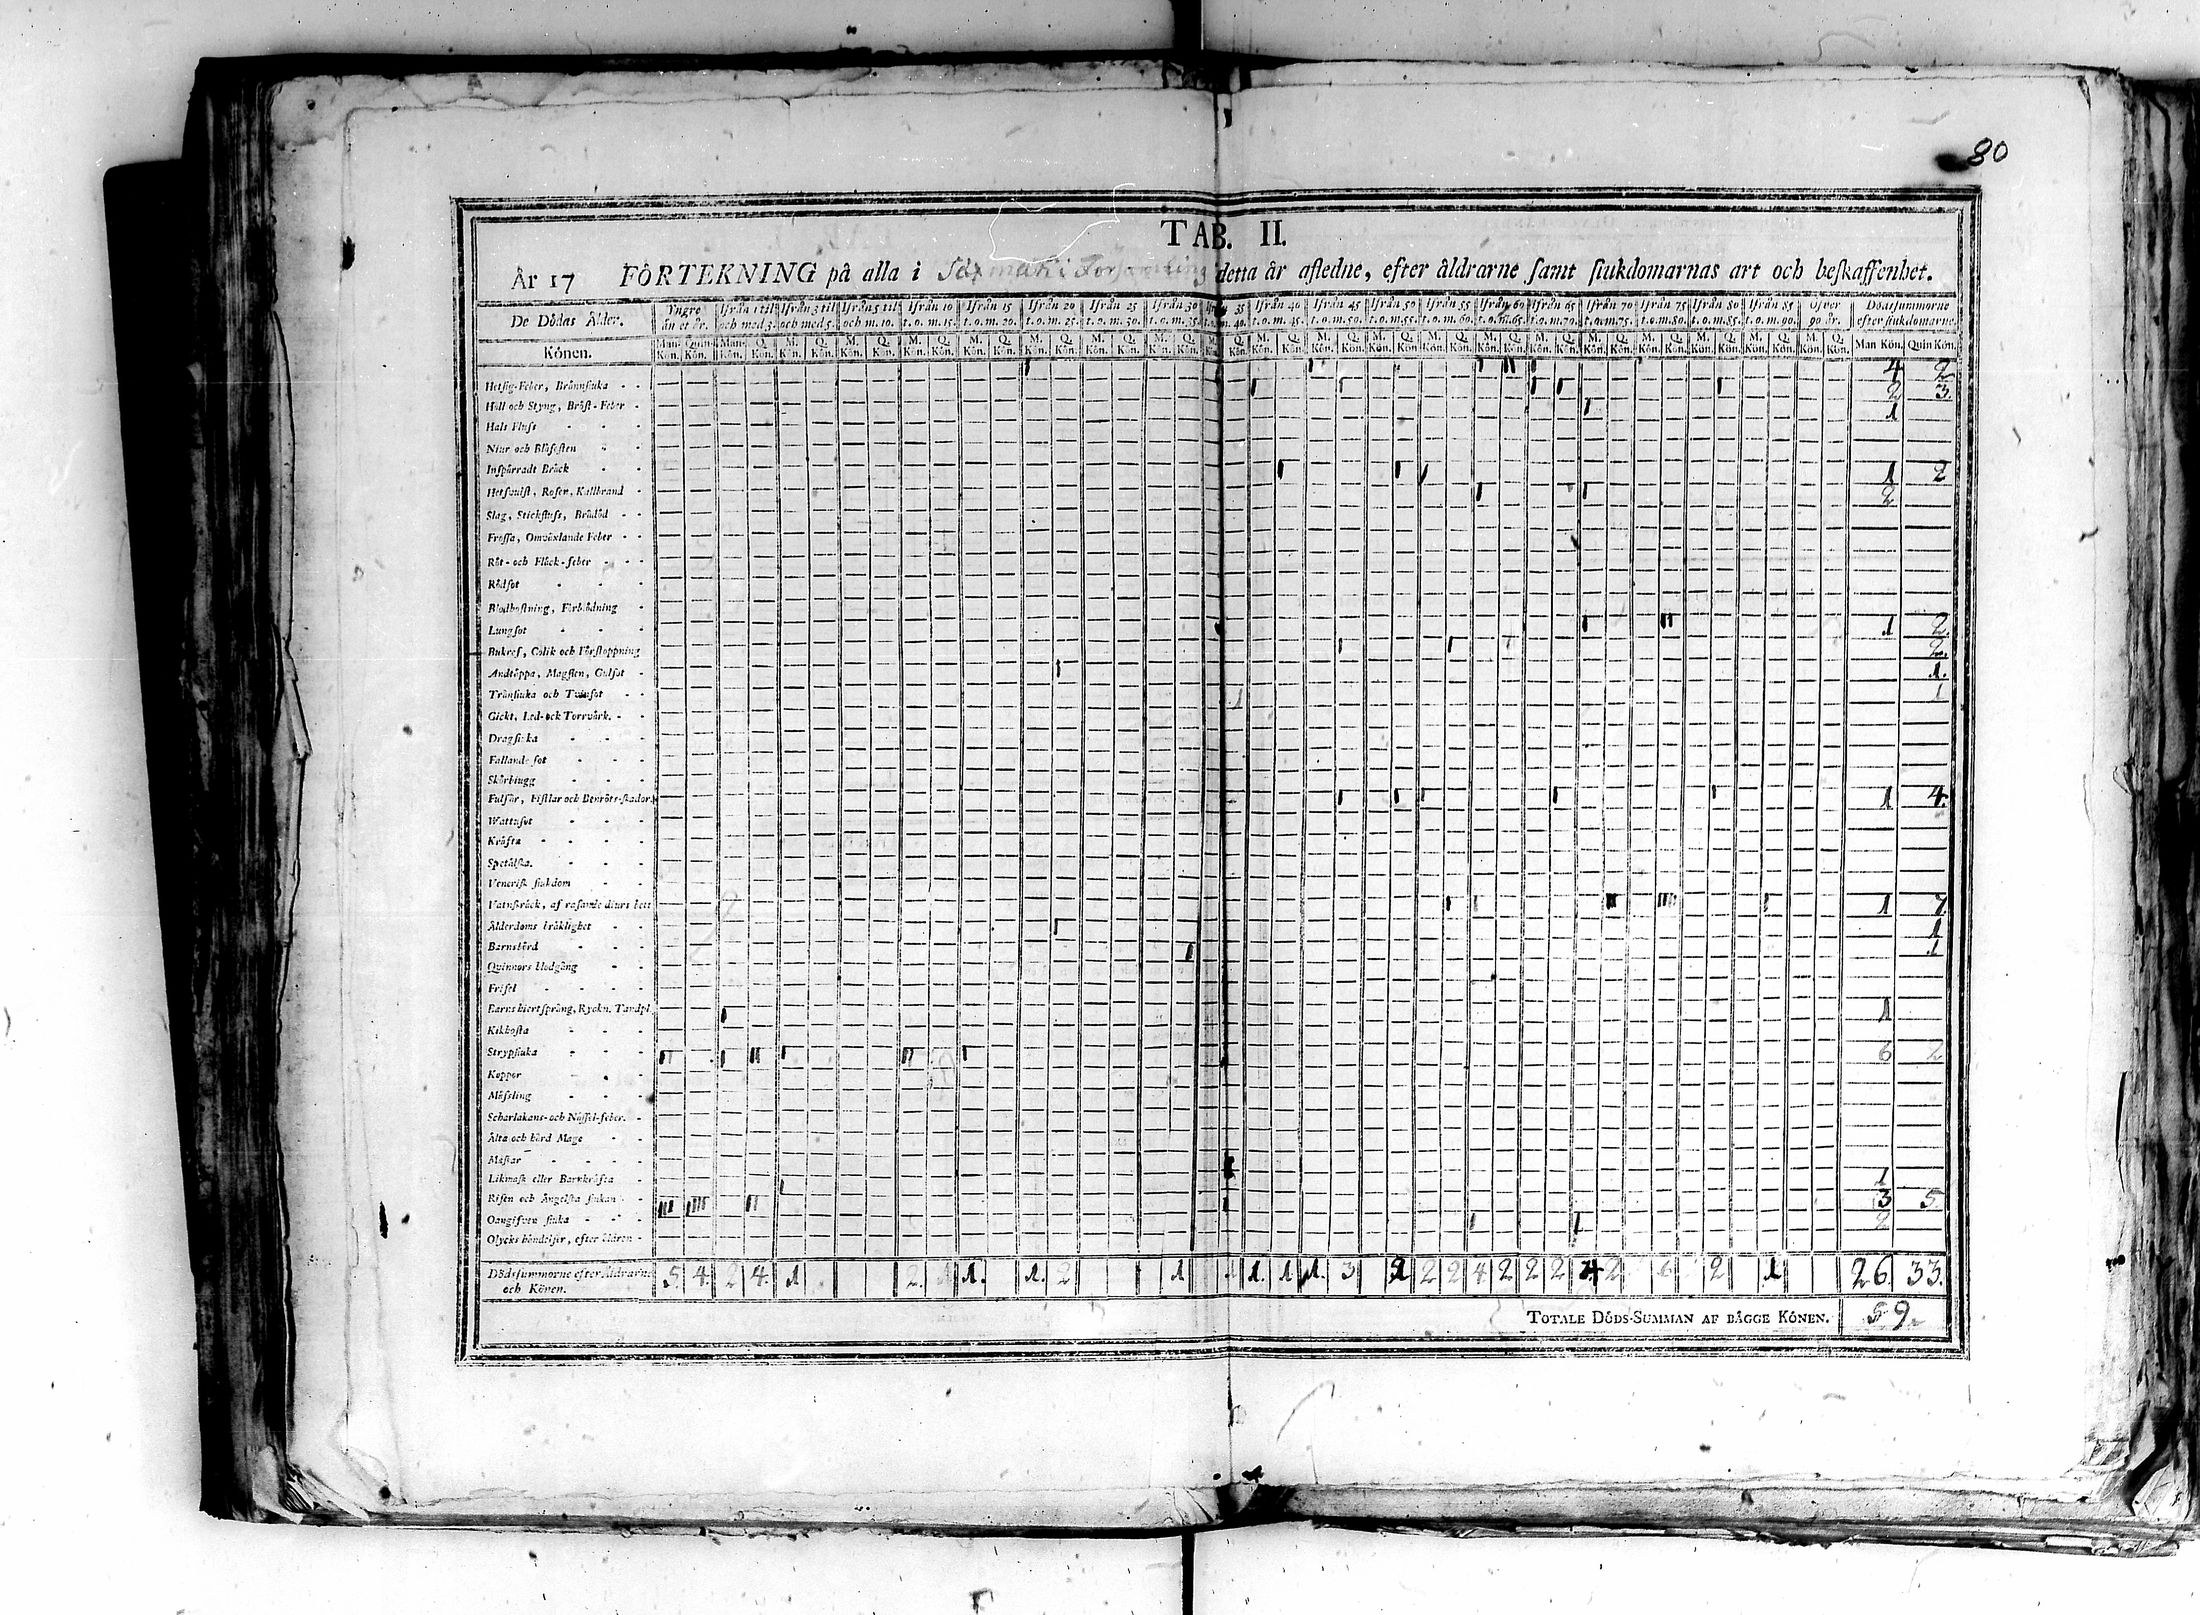 80
TAB. II.
År 17 FÖRTEKNING på alla i detta år afledne, efter åldrarne samt siukdomarnas art och beskaffenhet.
De Dödas Ålder. Yngre än et år. Ifrån 1 til och med 3. Ifrån 3 til och med 5. Ifrån 5 til och m. 10. Ifrån 10 t.o.m. 15. Ifrån 15 t.o.m. 20. Ifrån 20 t.o.m. 25. Ifrån 25 t.o.m. 30. Ifrån 30 t.o.m. 35. 35 40. Ifrån 40 t.o.m. 45. Ifrån 45 t.o.m. 50. Ifrån 50 t.o.m. 55. Ifrån 55 t.o.m. 60. Ifrån 60 t.o.m. 65. Ifrån 65 t.o.m. 70. Ifrån 70 t.o.m. 75. Ifrån 75 t.o.m. 80. Ifrån 80 t.o.m. 85. Ifrån 85 t.o.m. 90. Öfver 90 år. Dödssummorne efter siukdomarne
Könen. Man. Kön. Quin. Kön. Man. Kön. Q. Kön. M. Kön. Q. Kön. M. Kön. Q. Kön. M. Kön. Q. Kön. M. Kön. Q. Kön. M. Kön. Q. Kön. M. Kön. Q. Kön. M. Kön. Q. Kön. Q. Kön. M. Kön. Q. Kön. M. Kön. Q. Kön. M. Kön. Q. Kön. M. Kön. Q. Kön. M. Kön. Q. Kön. M. Kön. Q. Kön. M. Kön. Q. Kön. M. Kön. Q. Kön. M. Kön. Q. Kön. M. Kön. Q. Kön. M. Kön. Q. Kön. Man Kön. Quin Kön.
Hetsig-Feber, Brännsiuka 4 2
Håll och Styng, Bröst-Feber 2 3.
Hals Fluss 1
Niur och Blåsesten
Inspärradt Bråck 1 2
Hetsvulst, Rosen, Kallbrand 2
Slag, Stickfluss, Brådöd
Frossa, Omväxlande Feber
Röt- och Fläck-feber
Rödsot
Blodhostning, Förblödning
Lungsot 1 2
Bukref, Colik och Förstoppning 2.
Andtäppa, Magsten, Gulsot 1.
Trånsiuka och Tvinsot 1
Gickt, Led- och Torrvärk.
Dragsiuka
Fallande sot
Skörbiugg
Fulsår, Fistlar och Benröts-skador 1 4.
Wattusot
Kräfta
Spetälska.
Venerisk siukdom
Vatuskräck, af rasande diurs bett 1 7.
Ålderdoms bräklighet 1
Barnsbörd 1
Quinnors blodgång
Frisel
Barns hiertsprång, Ryckn. Tandpl. 1
Kikhosta
Strypsiuka 6 2
Koppor
Mässling
Scharlakans- och Nässel-feber.
Älta och hård Mage
Maskar
Likmask eller Barnkräfta 1
Risen och Ängelska siukan 3 5.
Oangifven siuka 2
Olycks händelser, efter
Dödssummorne efter Åldrarne 5 4. 2 4. 1 2. 1 1. 1. 2 1 1 1. 1 1. 3 2 2 2 4 2 2 2 4 2 6 2 1 26. 33.
och Könen.
TOTALE DÖDS-SUMMAN AF BÄGGE KÖNEN. 59.